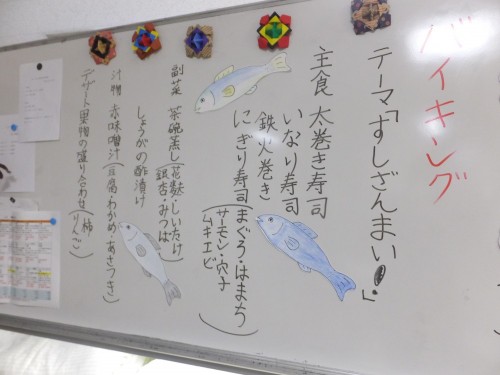 バイキング
テーマ「すしざんまい!」
主食 太巻き寿司
いなり寿司
鉄火巻き
にぎり寿司(まぐろ・はまち
サーモン・穴子
ムキエビ)
副菜 茶碗蒸し(花麩・しいたけ
銀杏・みつば)
しょうがの酢漬け
汁物 赤味噌汁(豆腐・わかめ・あさつき)
デザート 果物の盛り合わせ(柿
りんご)